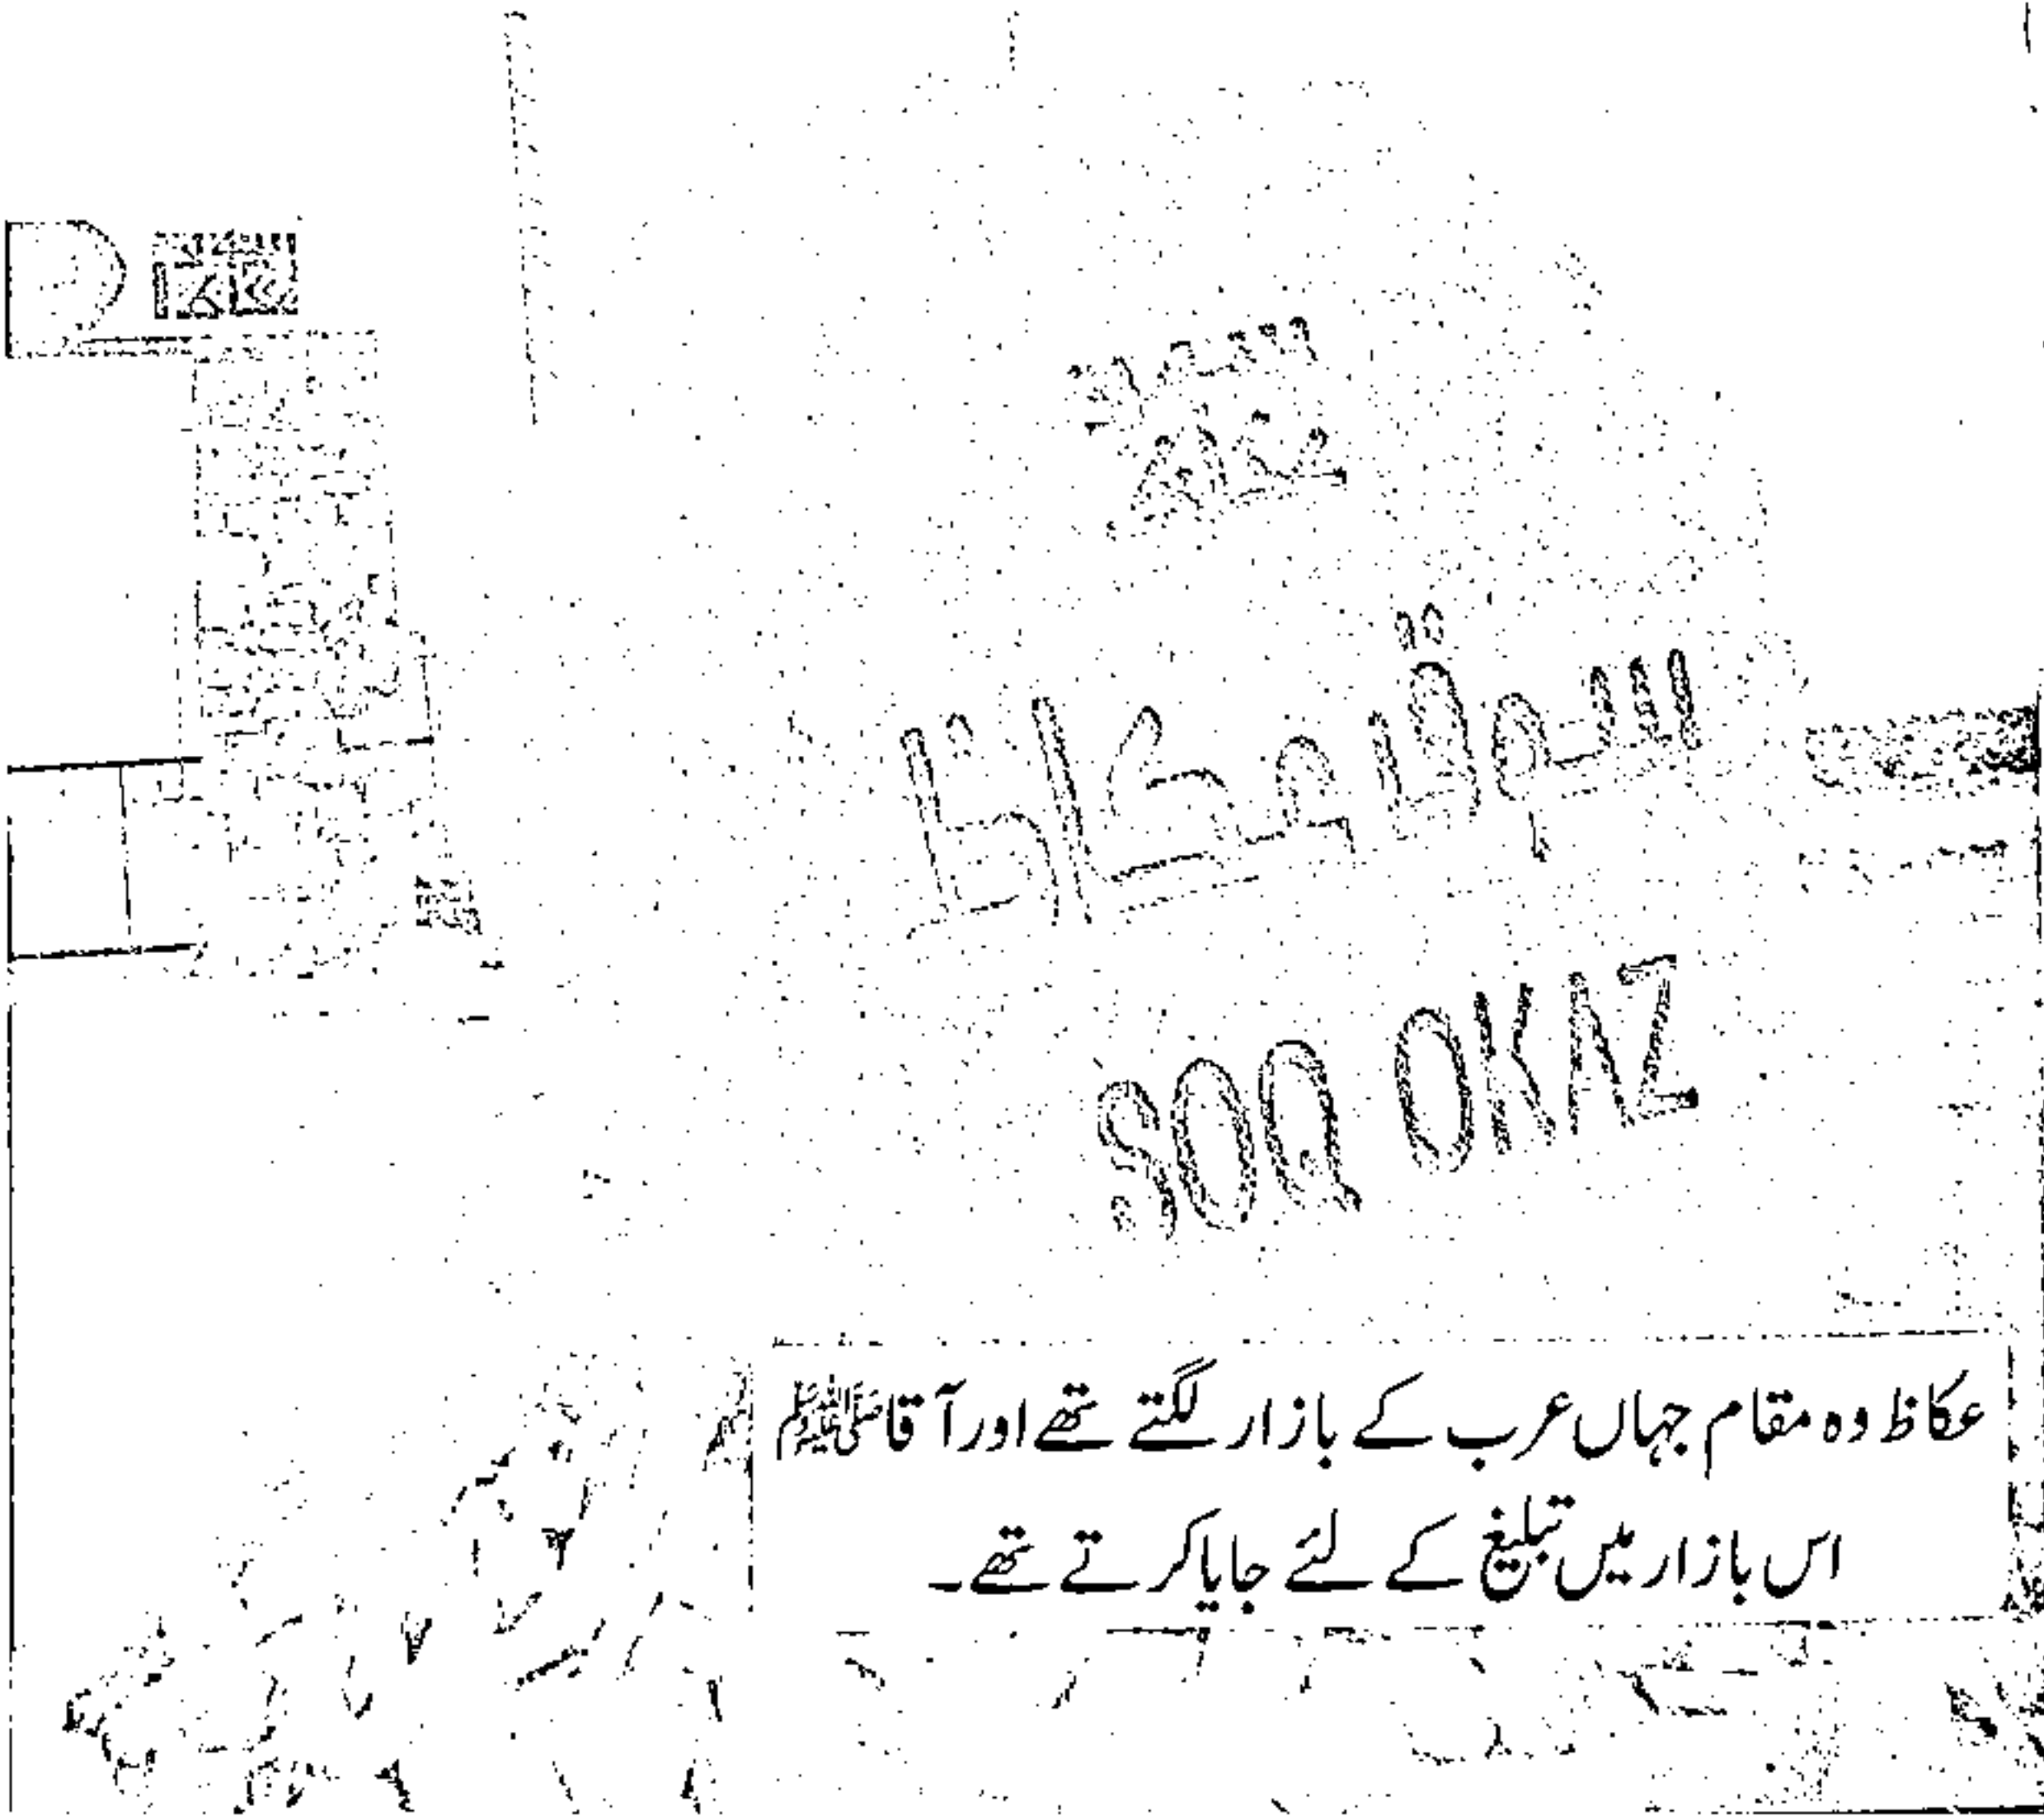 سوق عكاظ
SOQ OKAZ
عکاظ وہ مقام جہاں عرب کے بازار لگتے تھے اور آقا ﷺ
اس بازار میں تبلیغ کے لئے جایا کرتے تھے۔